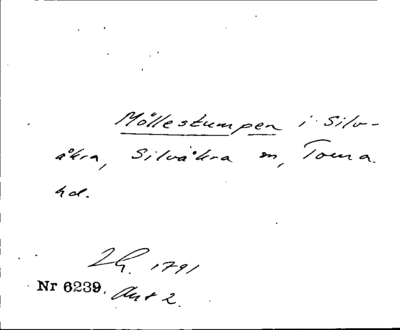 Möllestumpen i Silv-
åkra, Silvåkra sn, Torna
hd.
1791
Nr 6239. Akt 2.